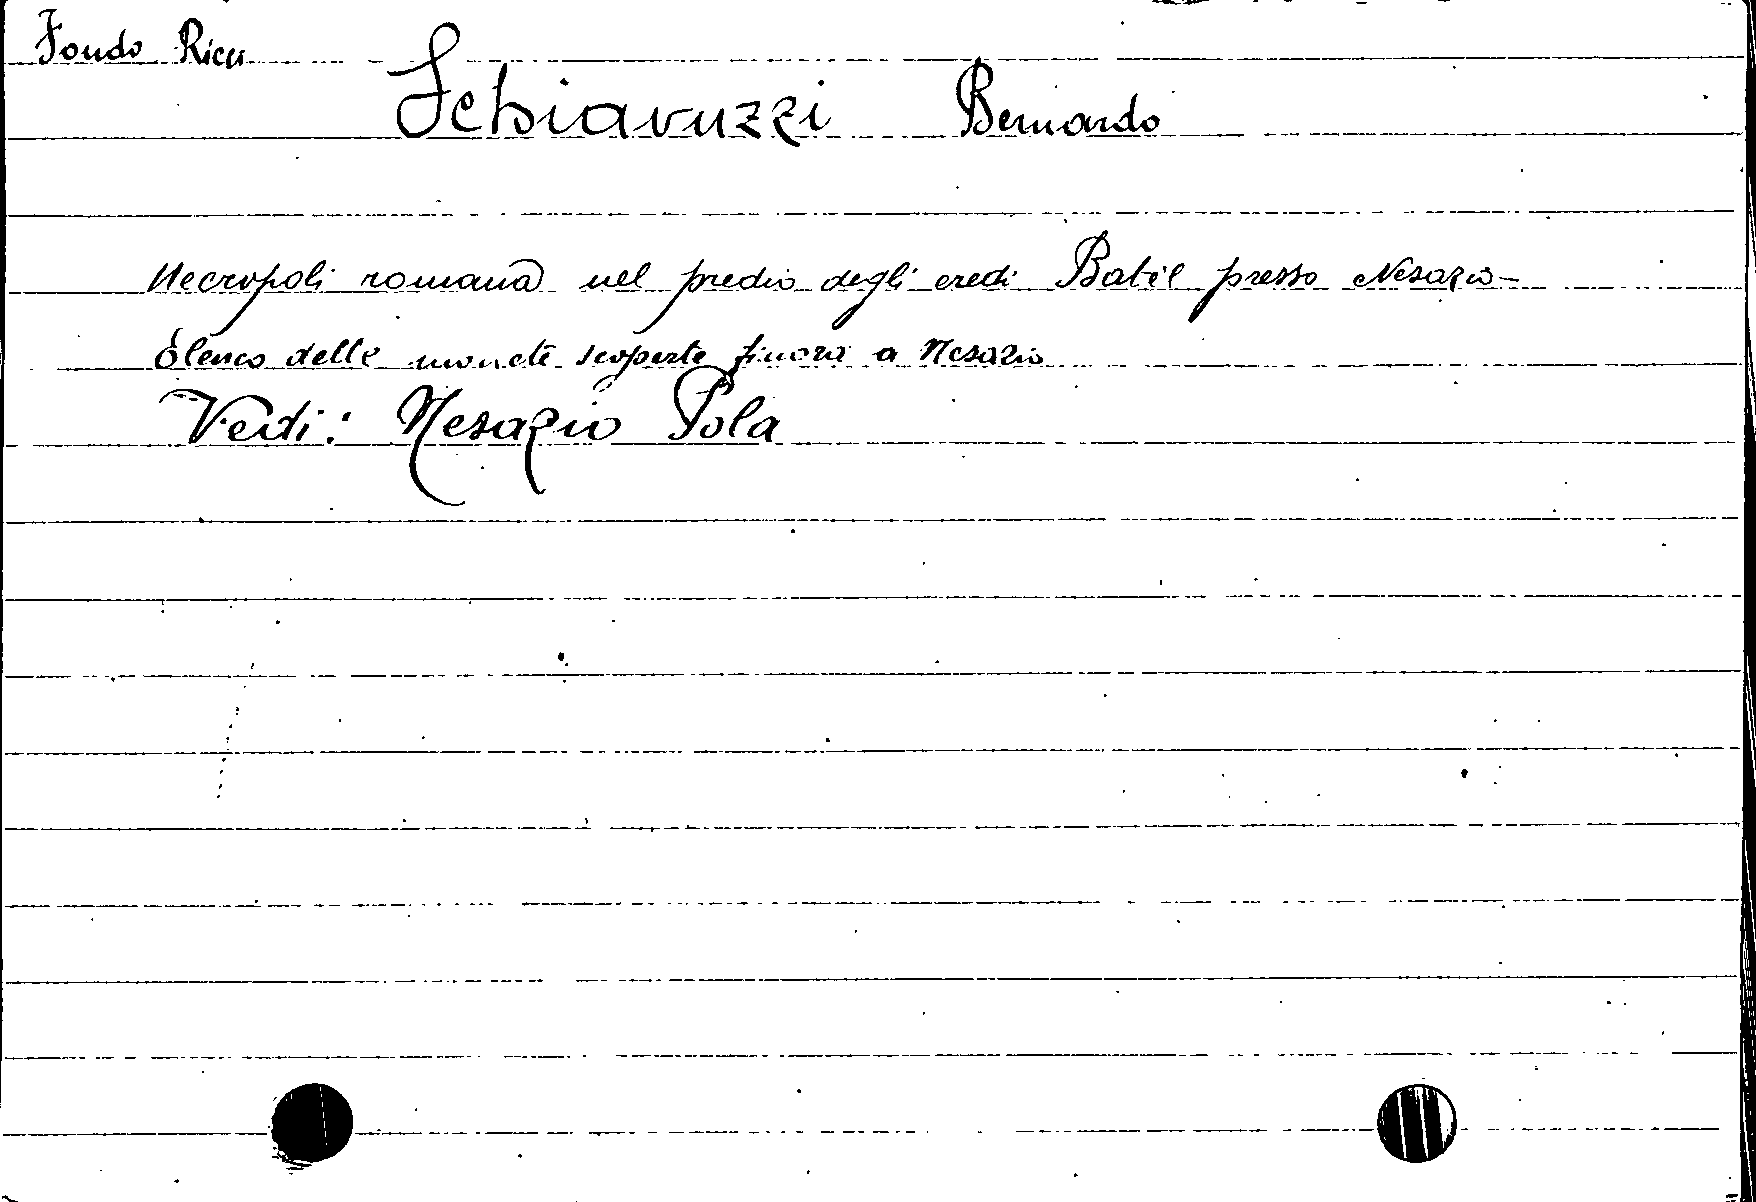 Fondo Ricci
Schiavuzzi Bernardo
Necropoli romana nel predio degli eredi Batèl presso Nesazio -
Elenco delle monete scoperte finora a Nesazio
Vedi: Nesazio Pola